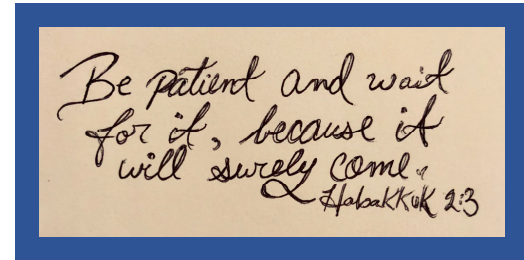 Be patient and wait
for it, because it
will surely come.
Habakkuk 2:3